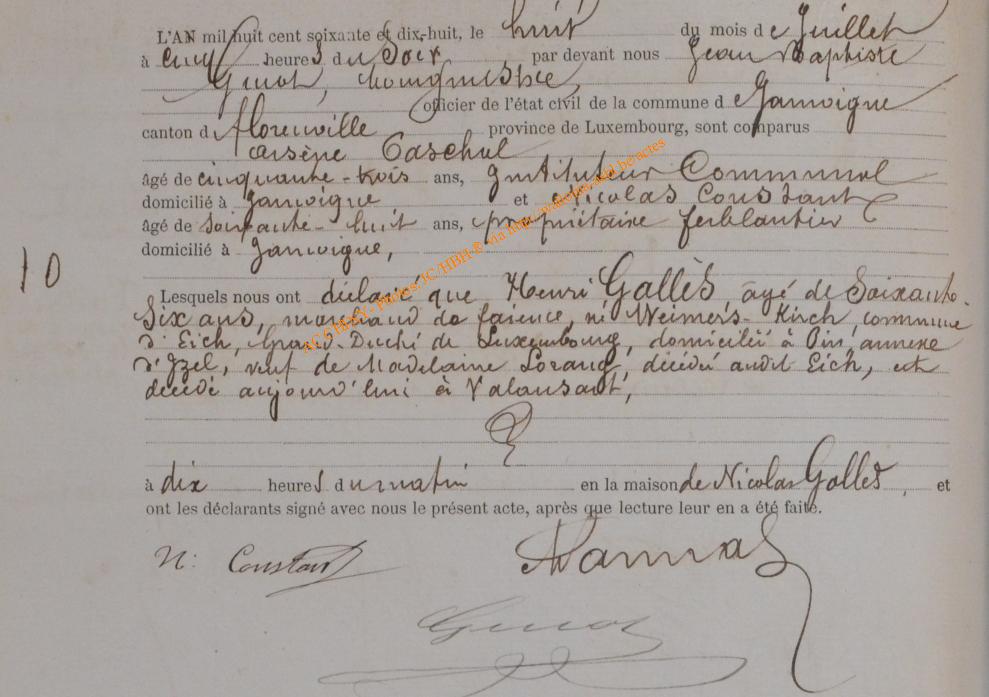 L'AN mil huit cent soixante et dix-huit, le huit du mois de Juillet
à cinq heures du Soir par devant nous Jean Baptiste
Ginot, bourgmestre,
officier de l'état civil de la commune de Jamoigne
canton d Florenville province de Luxembourg, sont comparus
Arsène
âgé de cinquante-trois ans, Instituteur Communal
domicilié à Jamoigne et Nicolas Constant
âgé de soixante-huit ans, propriétaire ferblantier
domicilié à Jamoigne,
10
Lesquels nous ont déclaré que Henri Gallès, âgé de Soixante-
Six ans, marchand de faïence, né Weimers-Kirch, commune
d'Eich, Grand-Duché de Luxembourg, domicilié à Pin, annexe
d'Izel, veuf de Madelaine Lorang, décédée audit Eich, est
décédé aujourd'hui à Valansart,
à dix heures du matin en la maison de Nicolas Gallès, et
ont les déclarants signé avec nous le présent acte, après que lecture leur en a été faite.
N: Constant
Ginot